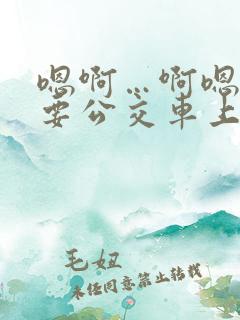 嗯啊…啊嗯
要公交车上
毛妞
未经同意禁止转载